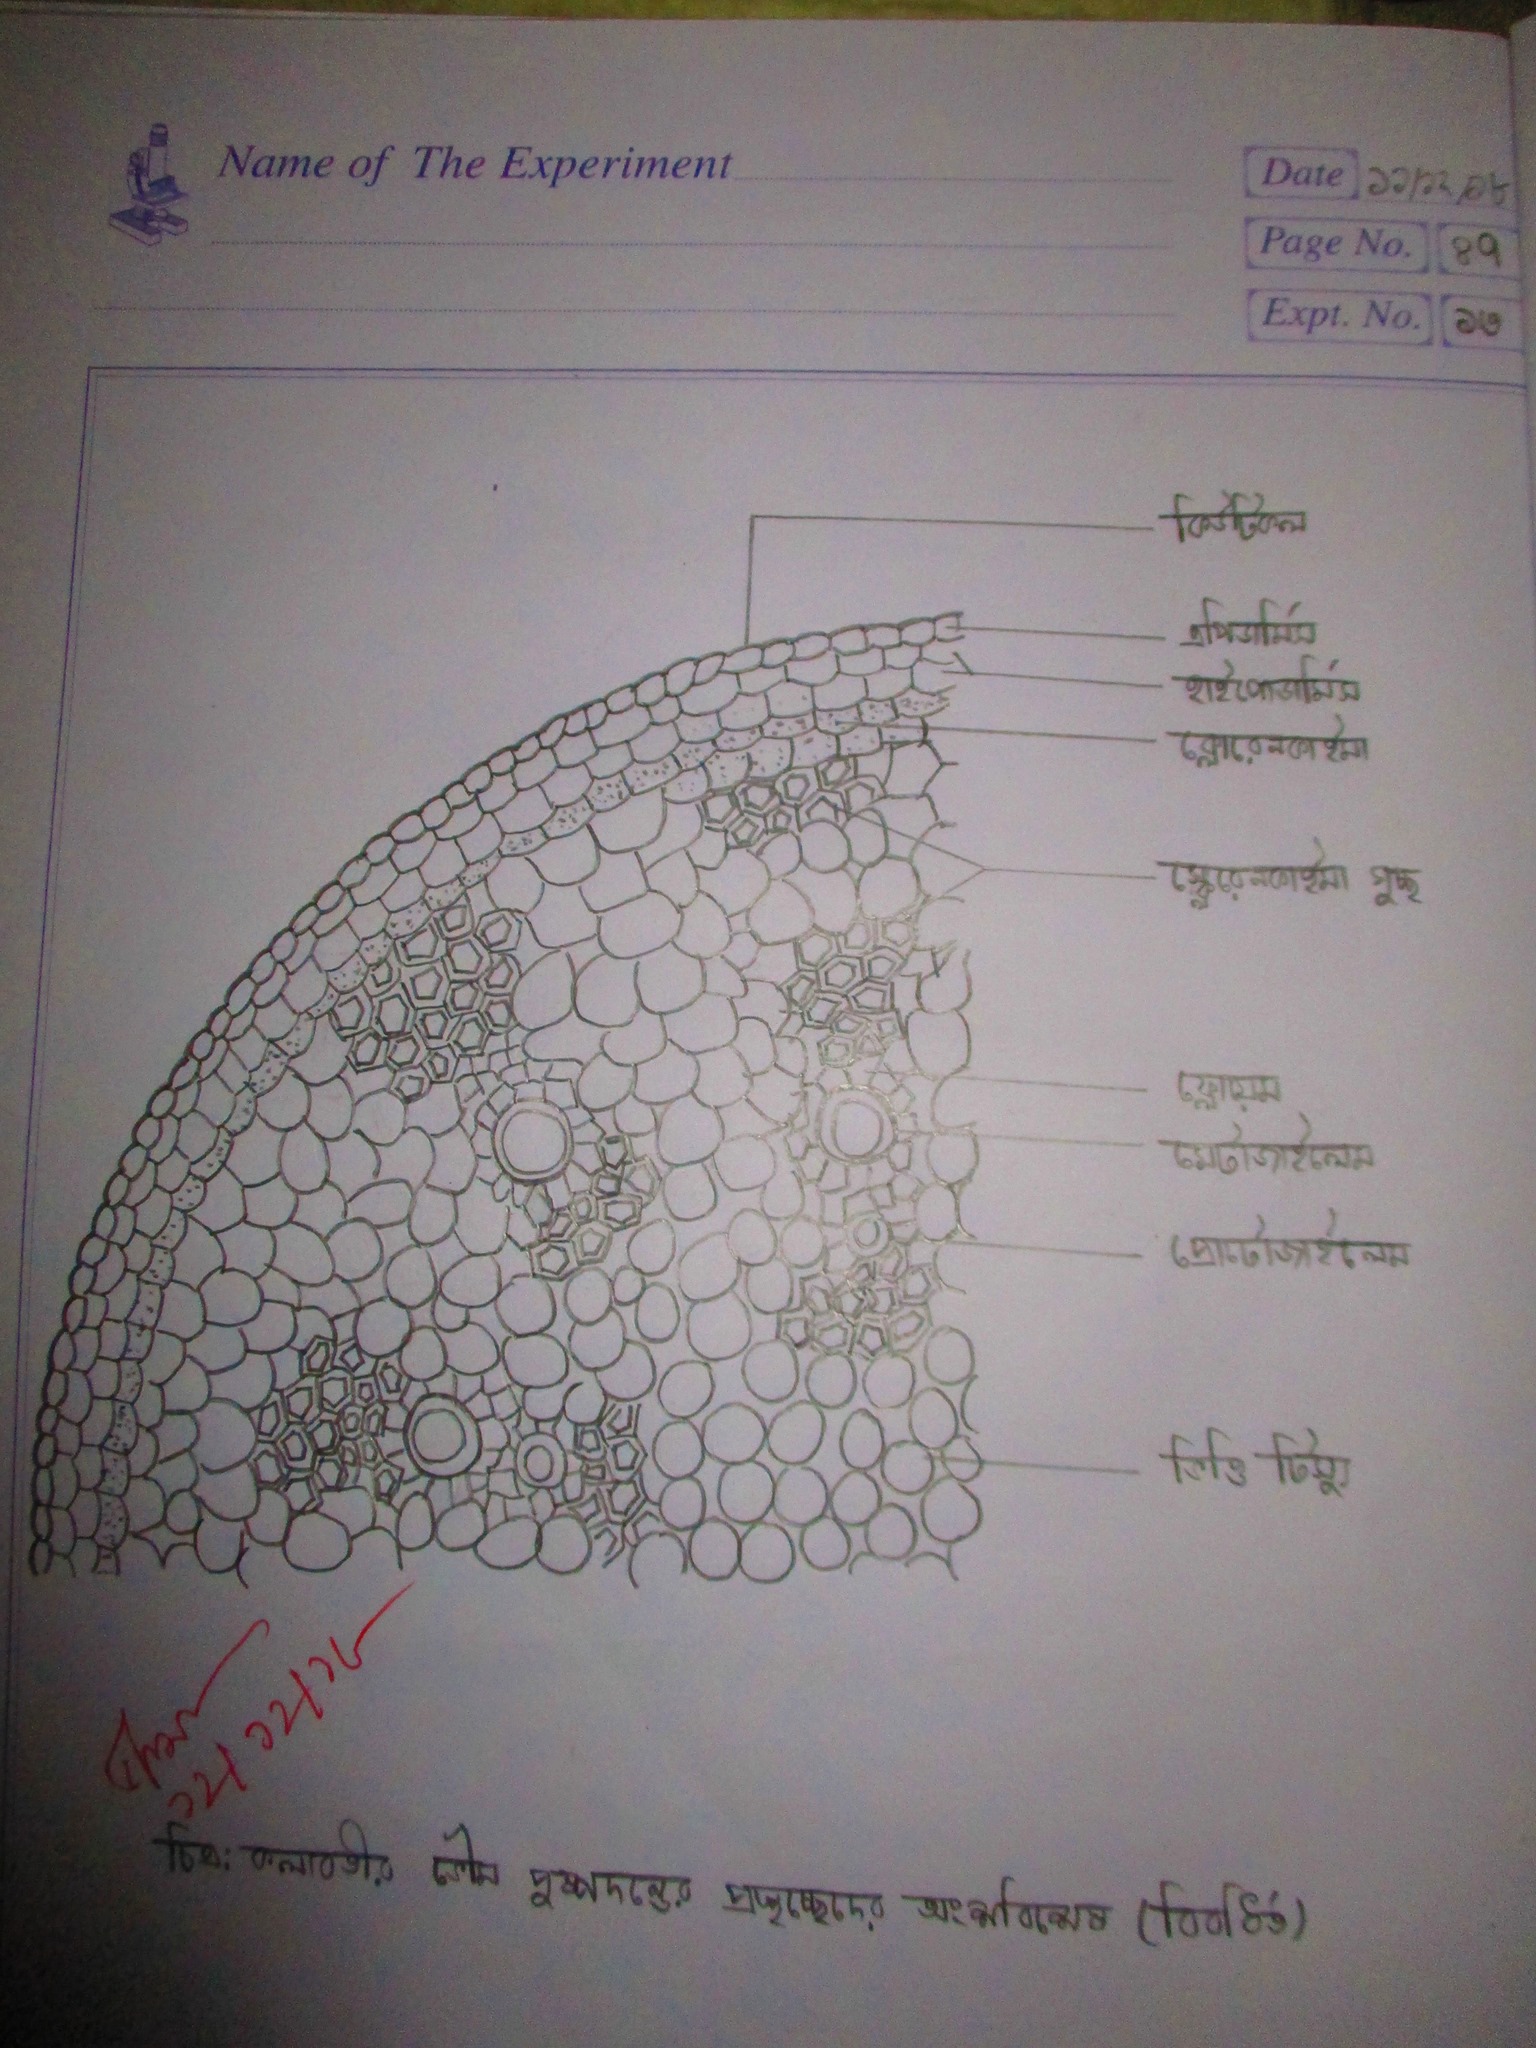 Name of The Experiment
Date ১১/১২/১৮
Page No. ৪৭
Expt. No. ১৩
কিউটিকল
এপিডার্মিস
হাইপোডার্মিস
ক্লোরেনকাইমা
স্ক্লেরেনকাইমা গুচ্ছ
ফ্লোয়েম
মেটাজাইলেম
প্রোটোজাইলেম
ভিত্তি টিস্যু
১২/১২/১৮
চিত্র: কলাবতীর ভৌম পুষ্পদন্ডের প্রস্থচ্ছেদের অংশবিশেষ (বিবর্ধিত)